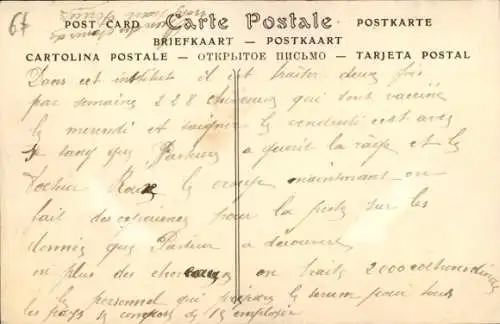 67
POST CARD Carte Postale POSTKARTE
BRIEFKAART — POSTKAART
CARTOLINA POSTALE — ОТКРЫТОЕ ПИСЬМО — TARJETA POSTAL
Dans cet institut il est traiter deux fois
par semaines 228 cheveaux qui sont vacciné
le mercredi et saigner le vendredi c'est avec
le sang que Pasteur a guerit la rage et le
Docteur Roux le croup maintenant on
fait des experiences pour la peste sur les
données que Pasteur a decouvert
ni plus des chevaux on traite 2000
le personnel qui prepare le serum pour tous
les pays se compose de employés